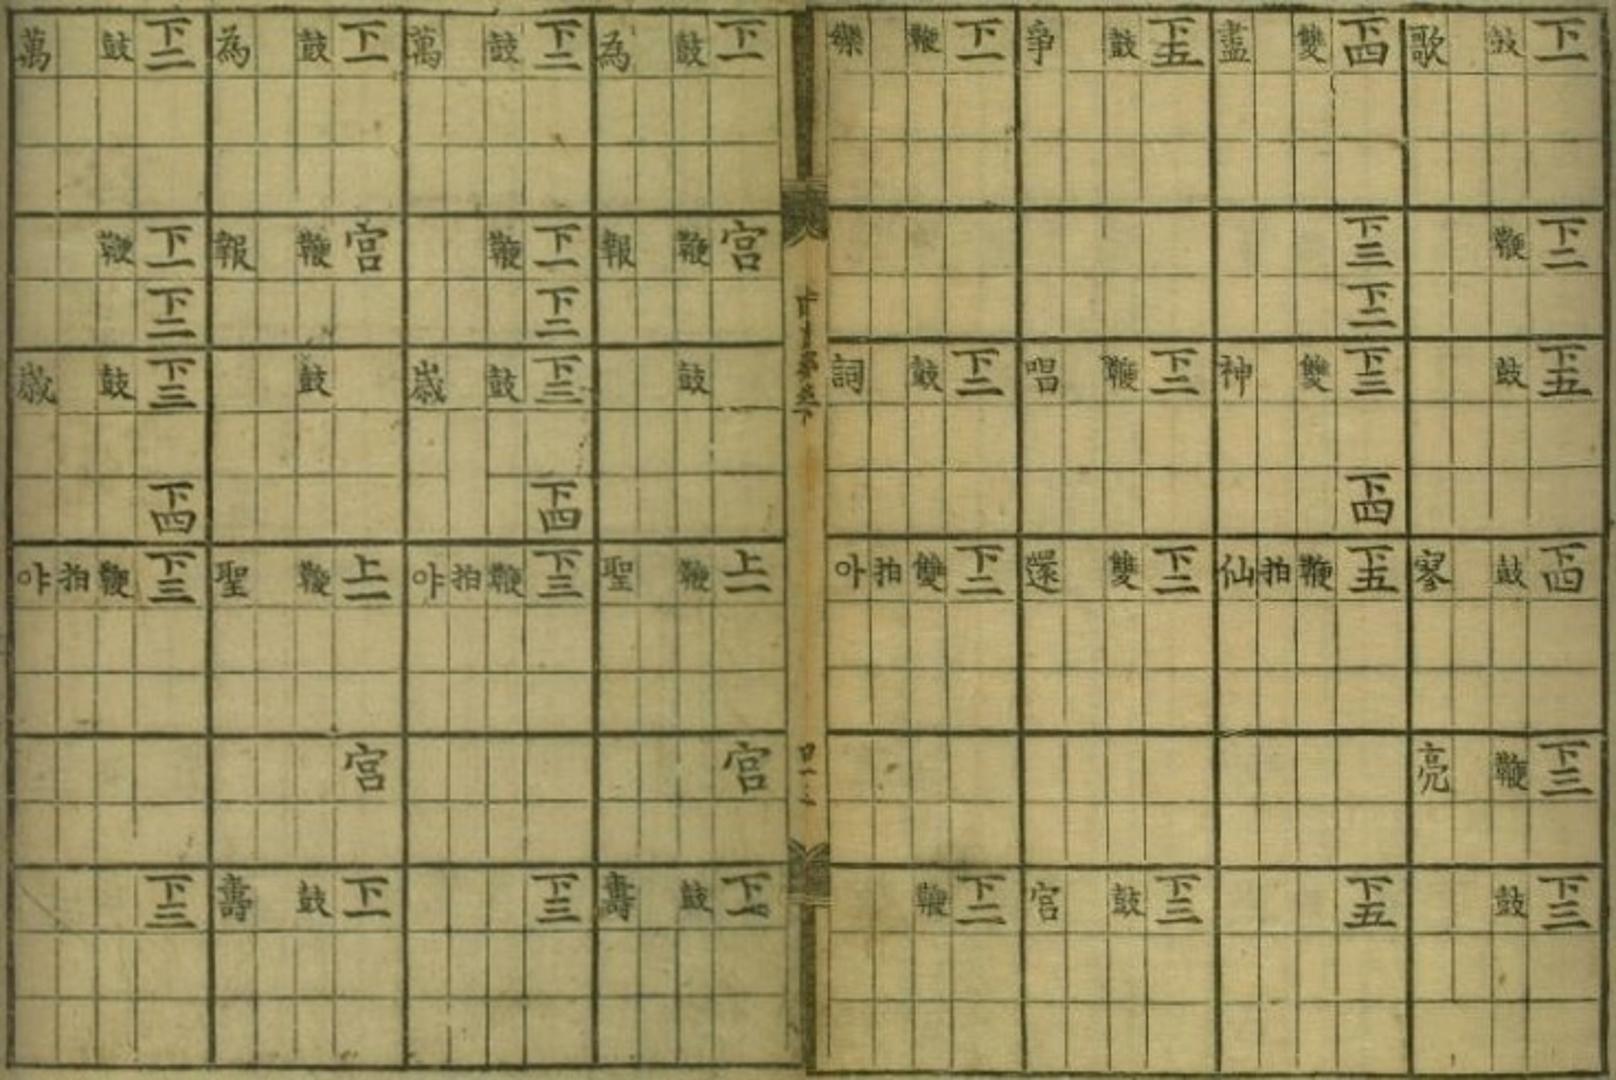 下一下二下五下四下三下三
鼓鞭鼓鼓鞭鼓
歌寥亮
下四下三下二下三下四下五下五
雙雙鞭
拍
盡神仙
下五下二下二下三
鼓鞭雙鼓
爭唱還宮
下一下二下二下二
鞭鼓雙鞭
拍
樂詞아
下一宮上一宮下一
鼓鞭鼓鞭鼓
為報聖壽
下二下一下二下三下四下三下三
鼓鞭鼓鞭
拍
萬歲야
下一宮上一宮下一
鼓鞭鼓鞭鼓
為報聖壽
下二下一下二下三下四下三下三
鼓鞭鼓鞭
拍
萬歲야